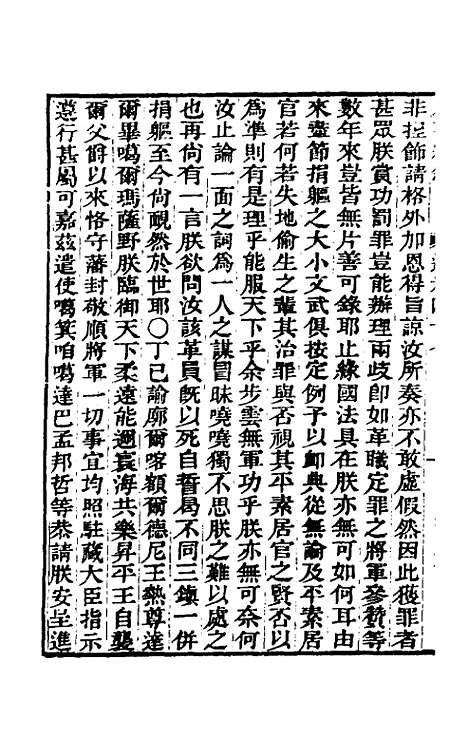 非捏飾請格外加恩得旨諒汝所奏亦不敢虛假然因此獲罪者
甚眾朕賞功罰罪豈能辦理兩歧即如革職定罪之將軍參贊等
數年來豈皆無片善可錄耶止緣國法具在朕亦無可如何耳由
來盡節捐軀之大小文武俱按定例予以卹典從無論及平素居
官若何若失地偷生之輩其治罪與否視其平素居官之賢否以
為準則有是理乎能服天下乎余步雲無軍功乎朕亦無可奈何
汝止論一面之詞為一人之謀冒昧嘵嘵獨不思朕之難以處之
也再尚有一言朕欲問汝該革員既以死自誓曷不同三鎮一併
捐軀至今尚覥然於世耶○丁巳諭廓爾喀額爾德尼王熱尊達
爾畢噶爾瑪薩野朕臨御天下柔遠能邇寰海共樂昇平王自襲
爾父爵以來恪守藩封敬順將軍一切事宜均照駐藏大臣指示
遵行甚屬可嘉茲遣使噶箕咱噶達巴孟邦哲等恭請朕安呈進